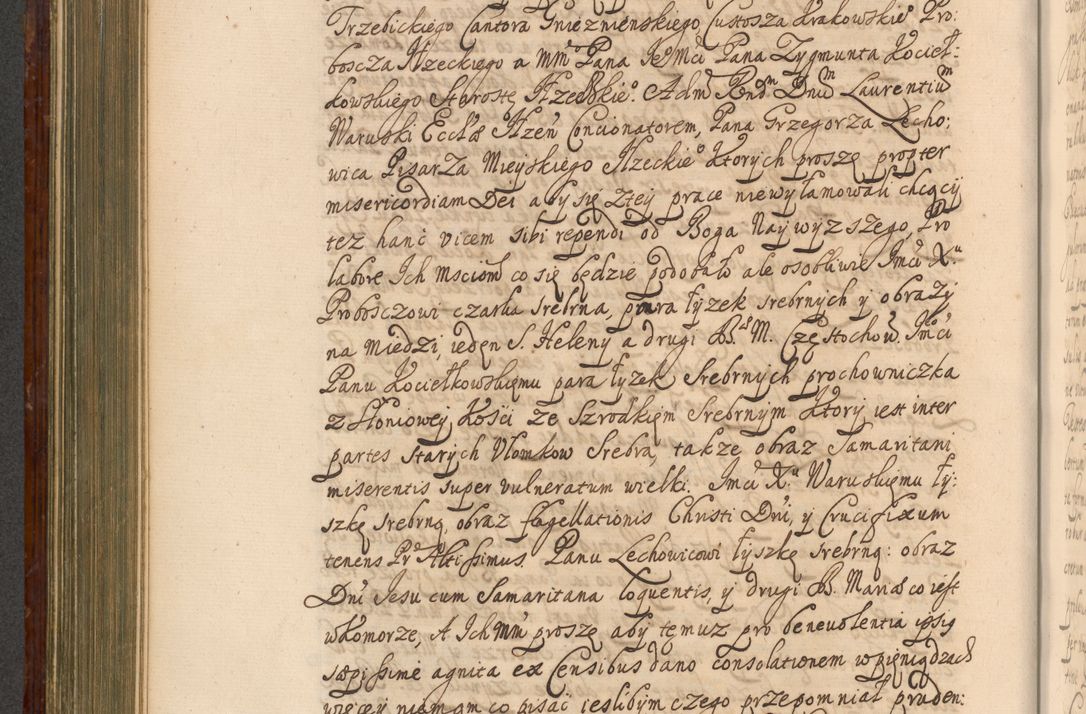 Trzebickiego Cantora Gnieznienskiego Custosza Krakowskie° Pro:
boscza Ilzeckiego a mm° Pana Je°Mci Pana Zygmunta Kocieł:
kowskiego Starostę Ilzeckie°. Adm Rnd^m Dnũ^m Laurentiũ^m
Waruski Eccl'æ Ilzeń Concionatorem, Pana Grzegorza Lecho:
wica Pisarza Mieyskiego Ilzeckie° Ktorych proszę propter
misericordiam Dei aby się ztey prace niewyłamowali chcącÿ
tez hanc vicem sibi rependi od Boga Naywyzszego, Pro
labore Ich Msciom co się będzie podobało ale osobliwie Imci X^u
Proboszczowi czarka srebrna, para łyzek srebrnych y obrazy
na miedzi, ieden S. Heleny a drugi B.^æ M. Częstochow. Imci
Panu Kociełkowskiemu para łyzek Srebrnych prochowniczka
z słoniowey Kości ze Szrodkiem Srebrnym Ktory iest inter
partes starych Vłomkow Srebra, takze obraz Samaritani
miserentis super vulneratum wielki. Imci X^u Waruskiemu ły:
szkę srebrną, obraz flagellationis Christi Dni, y Crucifixum
tenens Pr Altissimus. Panu Lechowicowi łyszkę srebrną: obraz
Dni Iesu cum Samaritana loquentis, y drugi B. Mariæ co iest
wkomorze, A Ich Mm proszę aby temuz pro benevolentia ipsis
sæpissime agnita ex Censibus dano consolationem wpieniądzach
więcey niemam co pisać ieslibym czego przepomniał pruden: